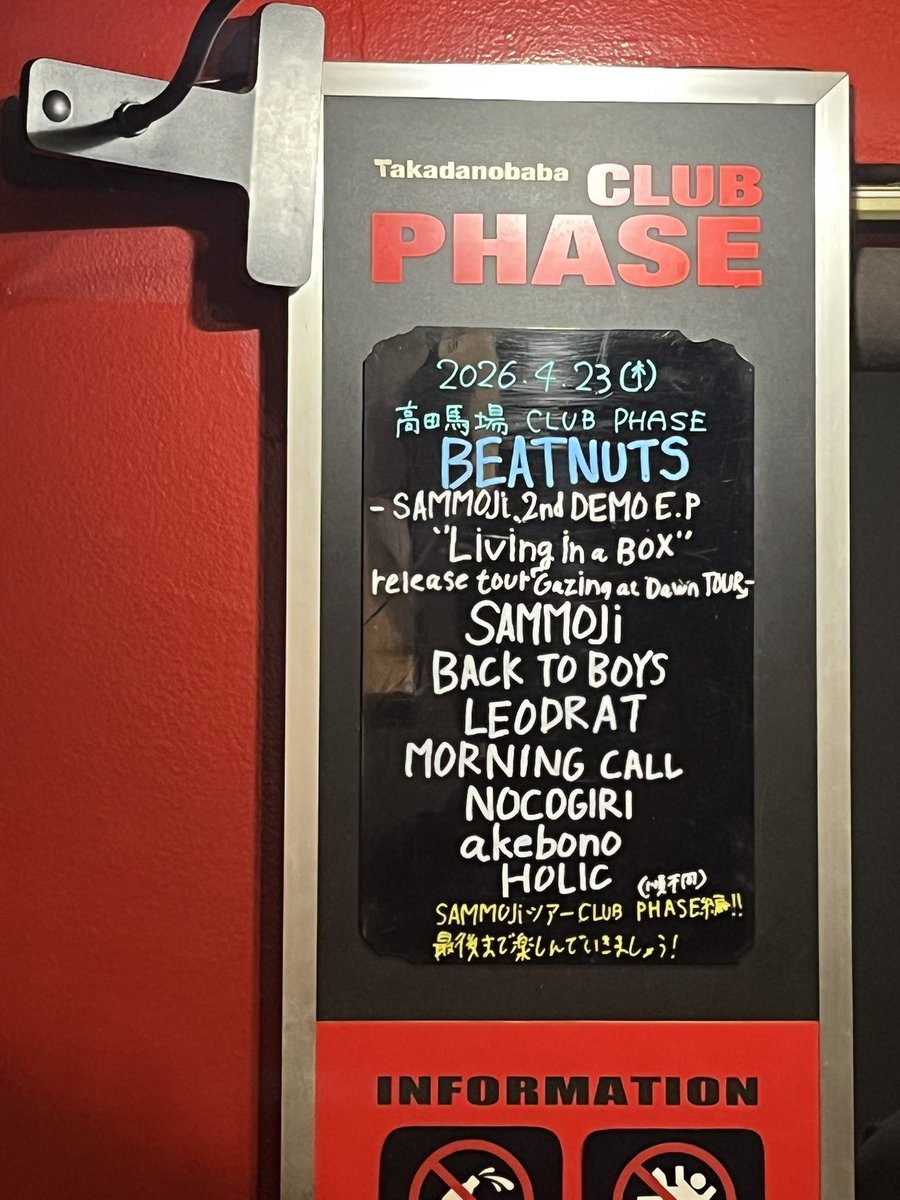 Takadanobaba CLUB
PHASE
2026.4.23(木)
高田馬場 CLUB PHASE
BEATNUTS
-SAMMOJi 2nd DEMO E.P
"Living in a BOX"
release tour "Gazing at Dawn TOUR"-
SAMMOJi
BACK TO BOYS
LEODRAT
MORNING CALL
NOCOGIRI
akebono
HOLIC (順不同)
SAMMOJiツアーCLUB PHASE編!!
最後まで楽しんでいきましょう!
INFORMATION